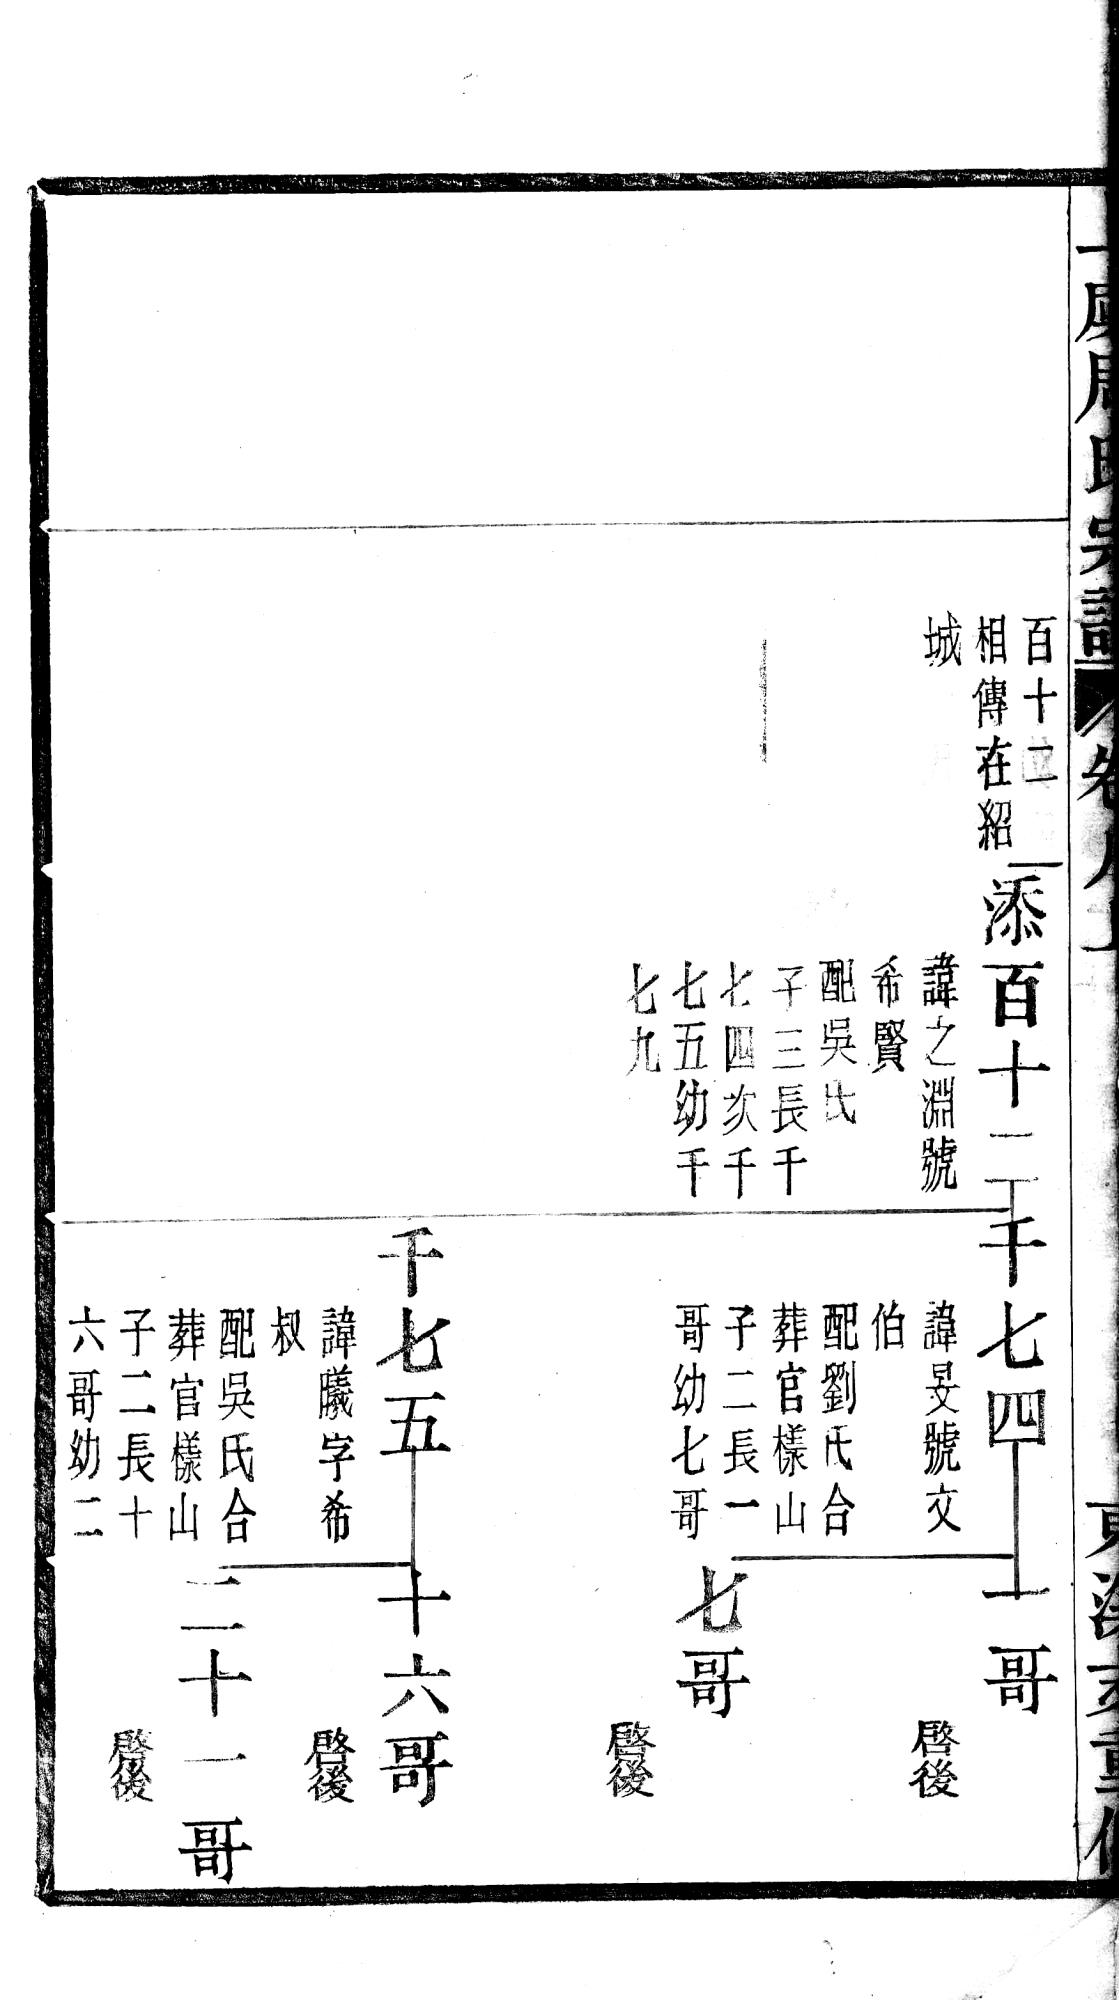 百十二
相傳在紹
城
添百十二
諱之淵號
希賢
配吳氏
子三長千
七四次千
七五幼千
七九
千七四
諱旻號文
伯
配劉氏合
葬官樣山
子二長一
哥幼七哥
千七五
諱曦字希
叔
配吳氏合
葬官樣山
子二長十
六哥幼二
一哥
啓後
七哥
啓後
十六哥
啓後
二十一哥
啓後